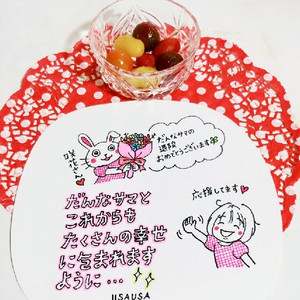 咲花さん
だんなサマの
退院
おめでとうございます
応援してます
だんなサマと
これからも
たくさんの幸せ
に包まれます
ように…
USAUSA